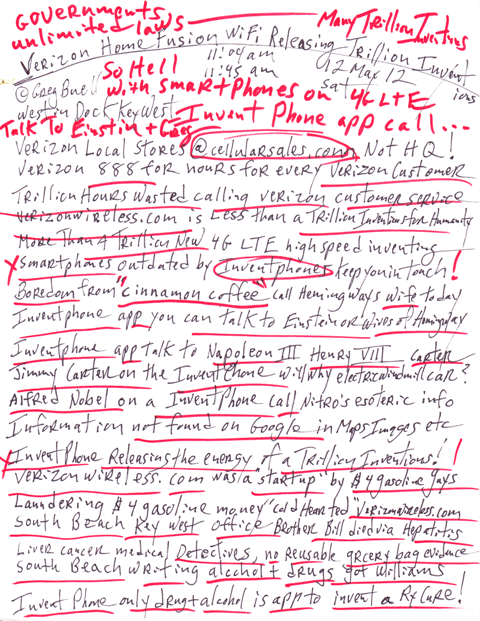 GOVERNMENTS
unlimited laws
Many Trillion Inventions
Verizon Home Fusion WiFi Releasing Trillion Inventions
11:04 am
11:45 am
12 May 12
Sat
So Hell
© Greg Buell
with smartphones on 4G LTE
West in Dock Key West
Invent Phone app call...
Talk To Einstin + Greg
Verizon Local Stores @cellularsales.com Not HQ!
Verizon 888 for hours for every Verizon Customer
Trillion Hours wasted calling verizon customer service
verizonwireless.com is Less than a Trillion Inventions for Humanity
More Than A Trillion New 4G LTE high speed inventing
X Smartphones outdated by Inventphones Keep you in touch!
Boredom from "cinnamon coffee" call Hemingways wife today
Inventphone app you can talk to Einstein or Wives of Hemingway
Inventphone app Talk to Napoleon III Henry VIII Carter
Jimmy Carter on the InventPhone will why electricwindmillcar?
Alfred Nobel on a InventPhone call Nitro's esoteric info
Information not found on Google in Maps Images etc
X InventPhone Releasing the energy of a Trillion Inventions!!
Verizon wireless.com was a "startup" by $4 gasoline guys
Laundering $4 gasoline money "cold Hearted" verizonwireless.com
South Beach Key West office Brother Bill died via Hepatitis
Liver cancer medical Detectives, no reusable grcery bag evidence
South Beach writing alcohol + drugs got Williams
Invent Phone only drug + alcohol is app to invent a Rx Cure!